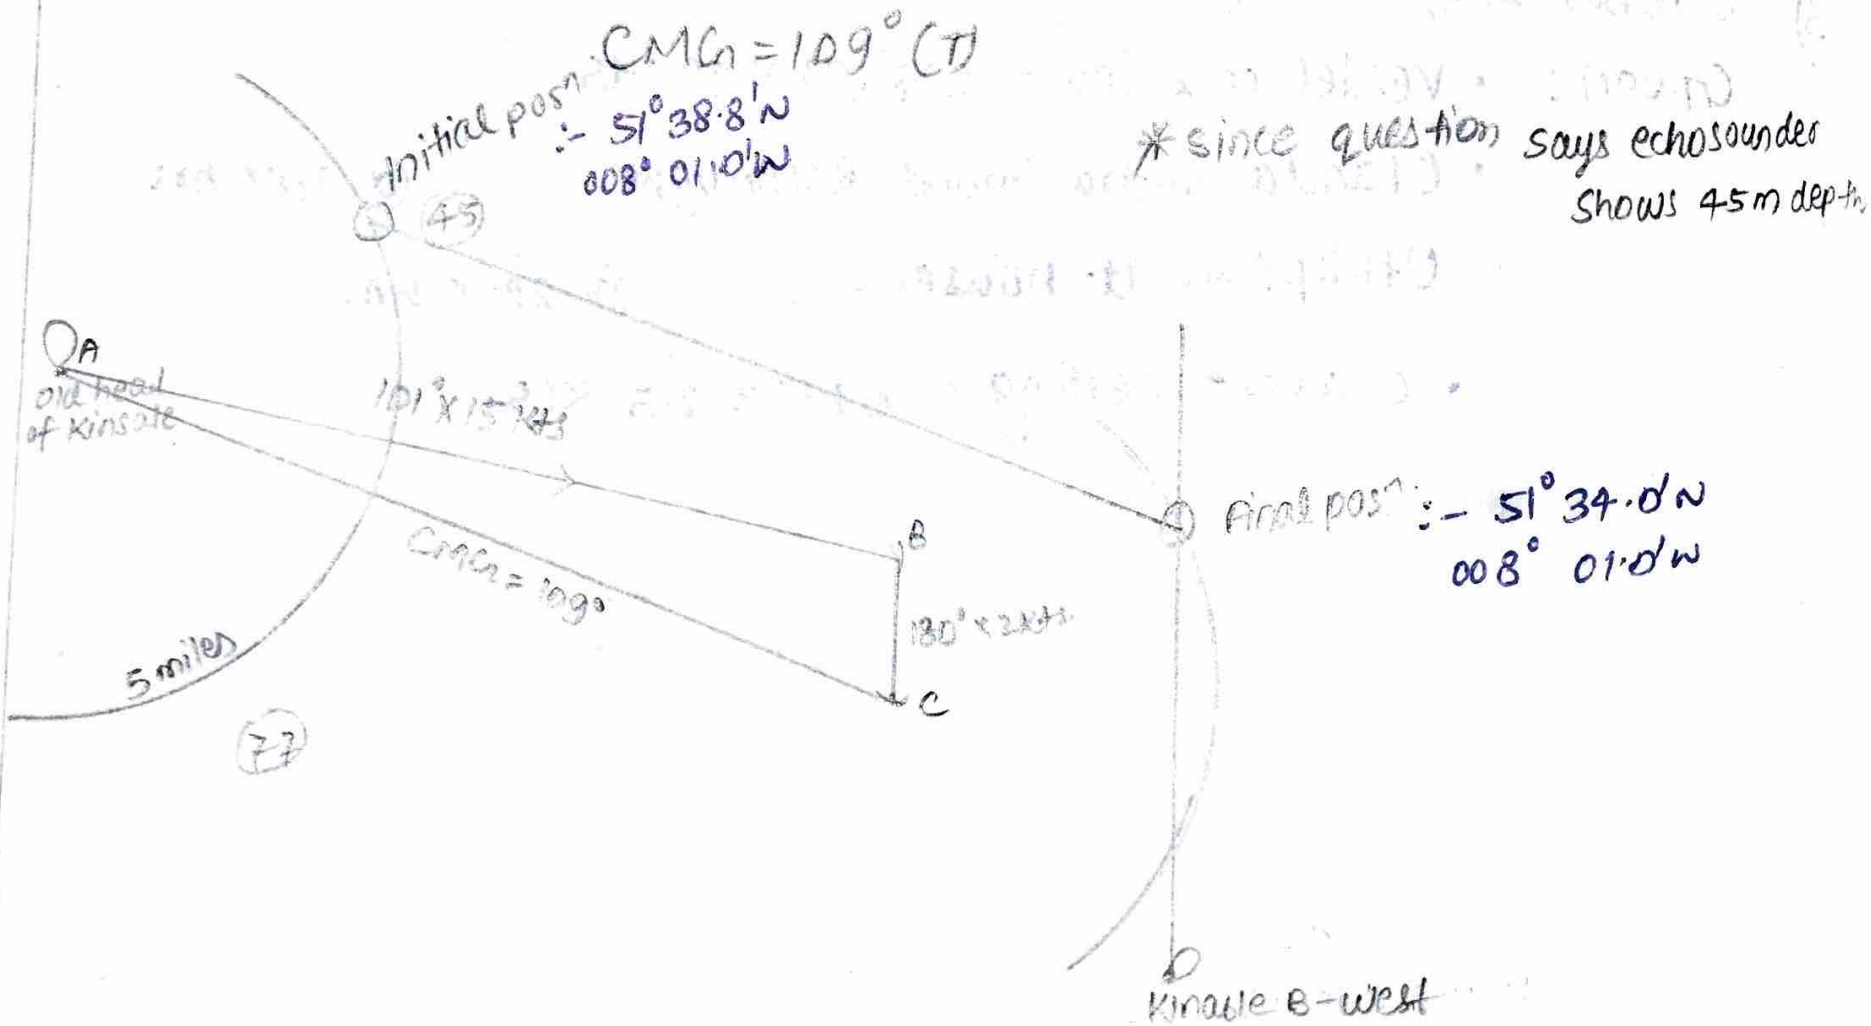 CMG = 109° (T)
Initial posn
:- 51° 38.8'N
008° 01.0'W
* since question says echosounder
shows 45m depth
45
A
old head
of Kinsale
101° x 15 kts
B
CMG = 109°
180° x 2kts.
C
5 miles
77
Final posn :- 51° 34.0'N
008° 01.0'W
Kinasle B-west